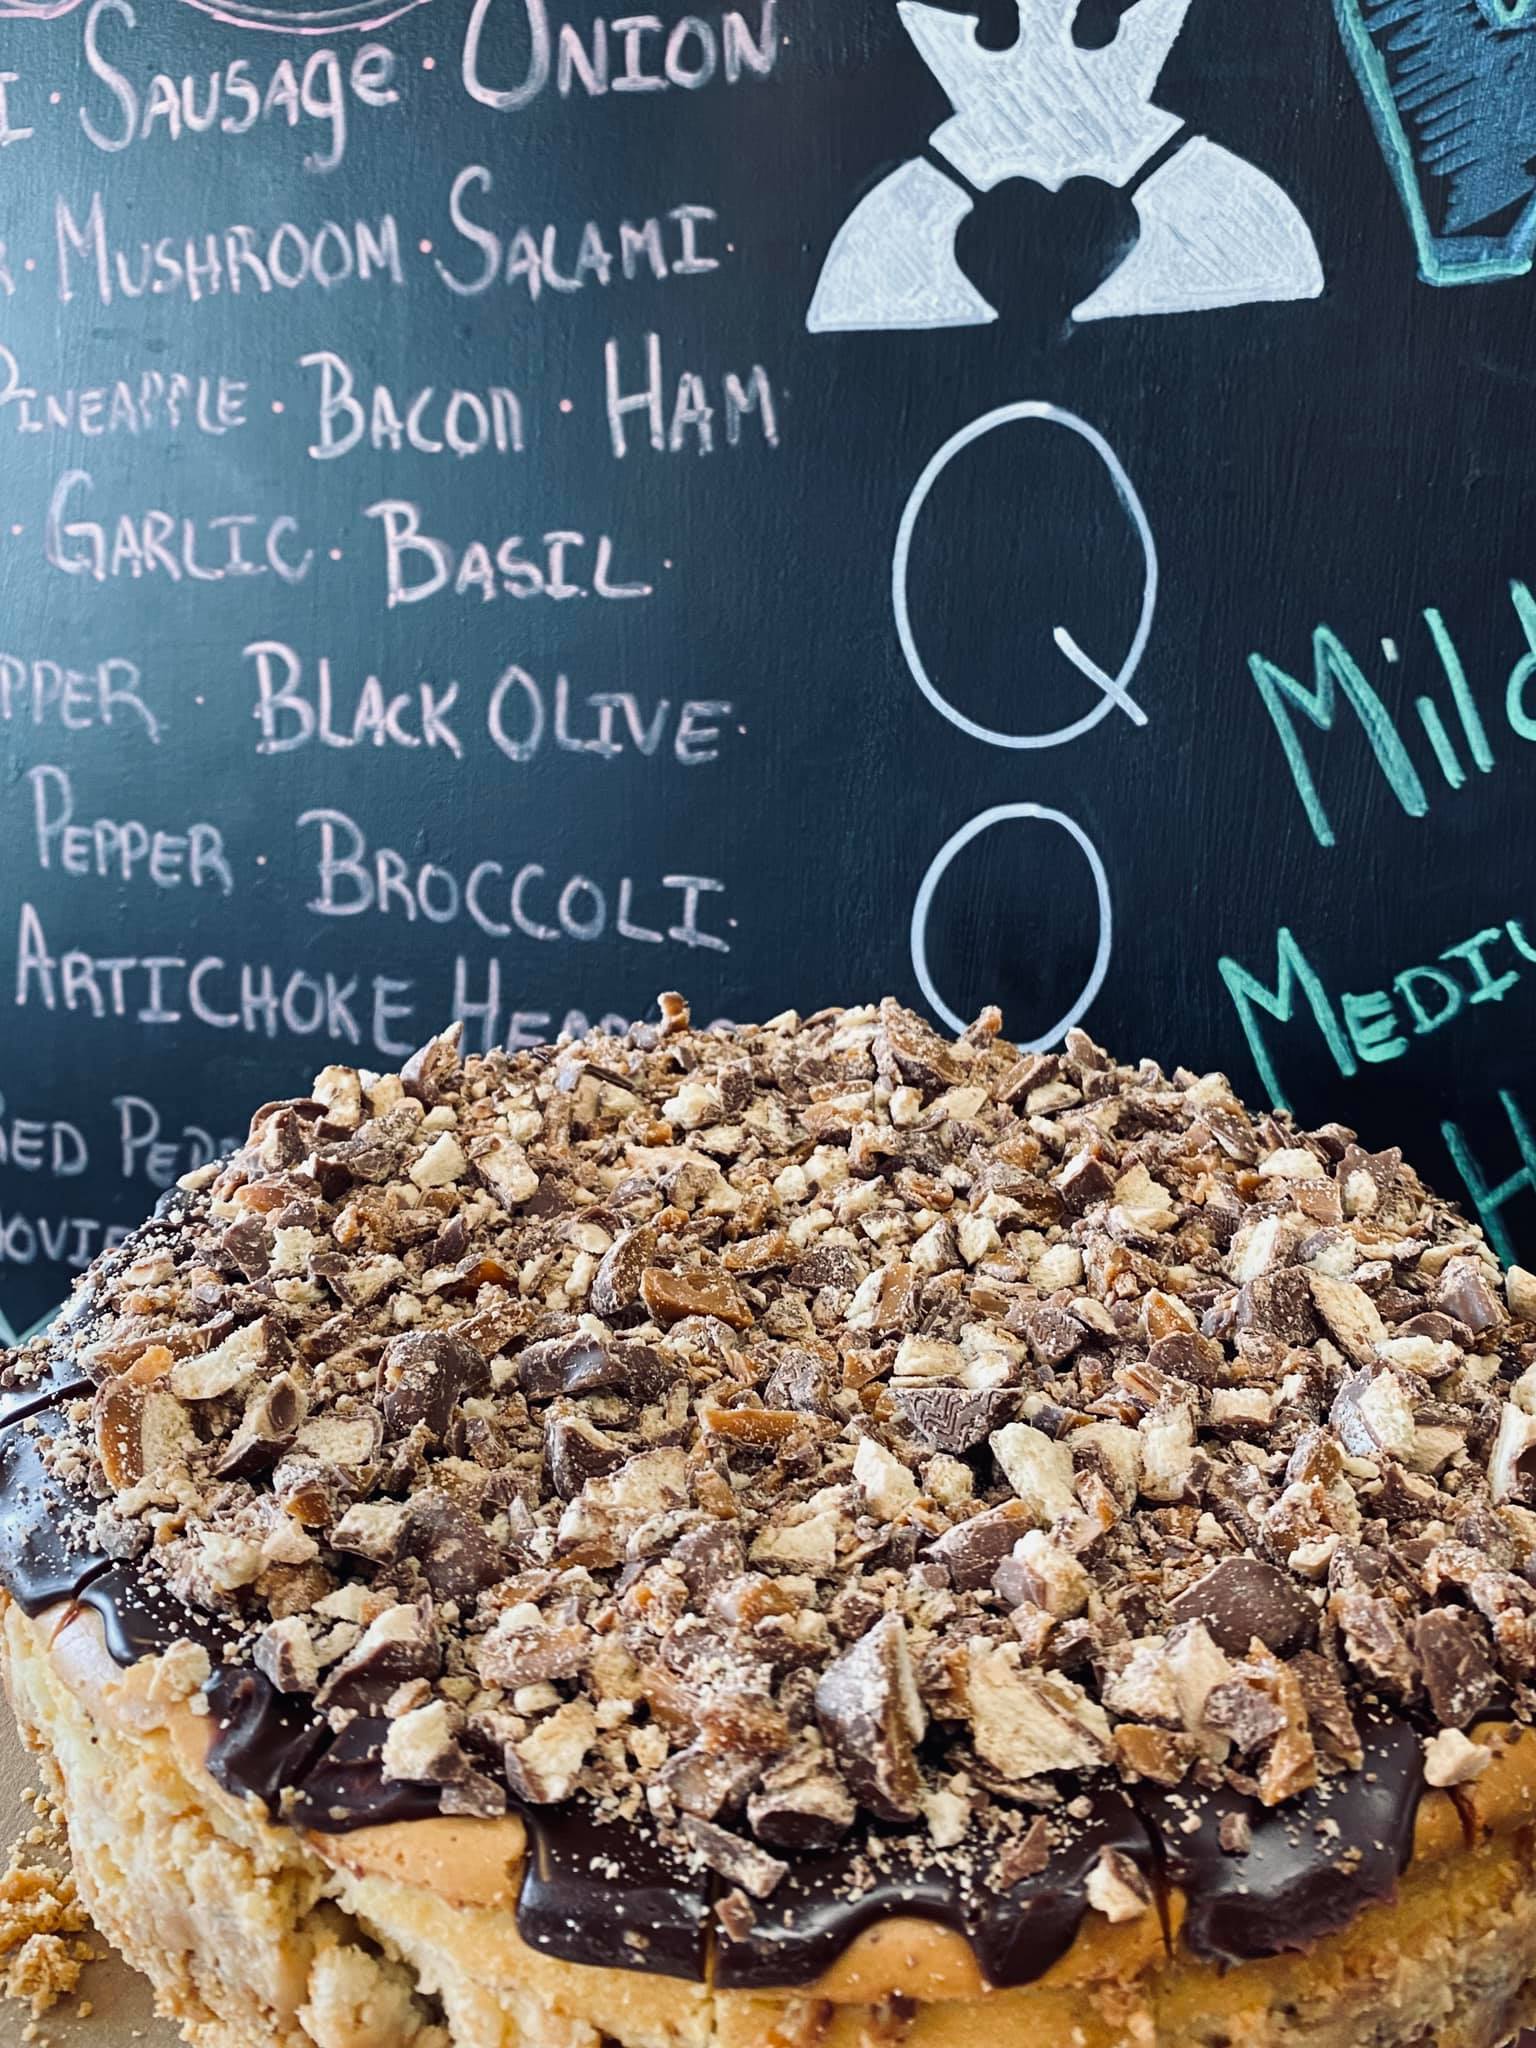 I · Sausage · Onion ·
R · Mushroom · Salami ·
Pineapple · Bacon · Ham
· Garlic · Basil ·
pper · Black Olive ·
Pepper · Broccoli ·
Artichoke
Red
Q
Q
Mild
Mediu
H